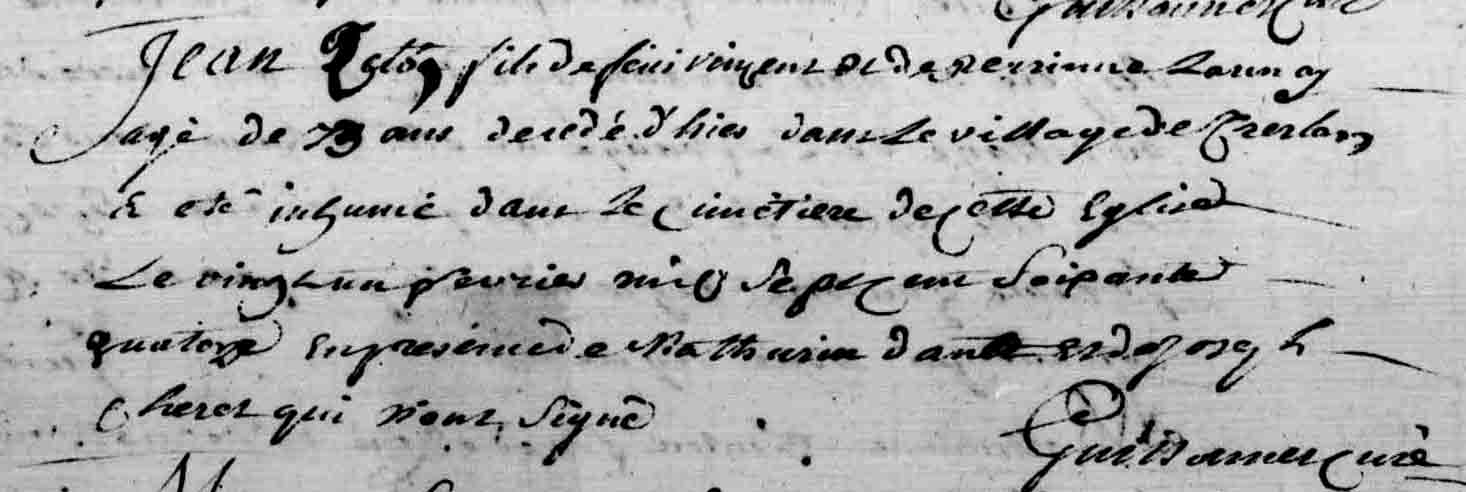 Jean fils de feu vincent et de perrinne Launay
agé de 73 ans decedé d'hier dans Le village de
a eté inhumé dans Le cimétiere de cette Eglise
Le vingt un fevrier mil sept cent soixante
quatorze En presence de Mathurin danet et de Joseph
cheret qui n'ont signé
curé